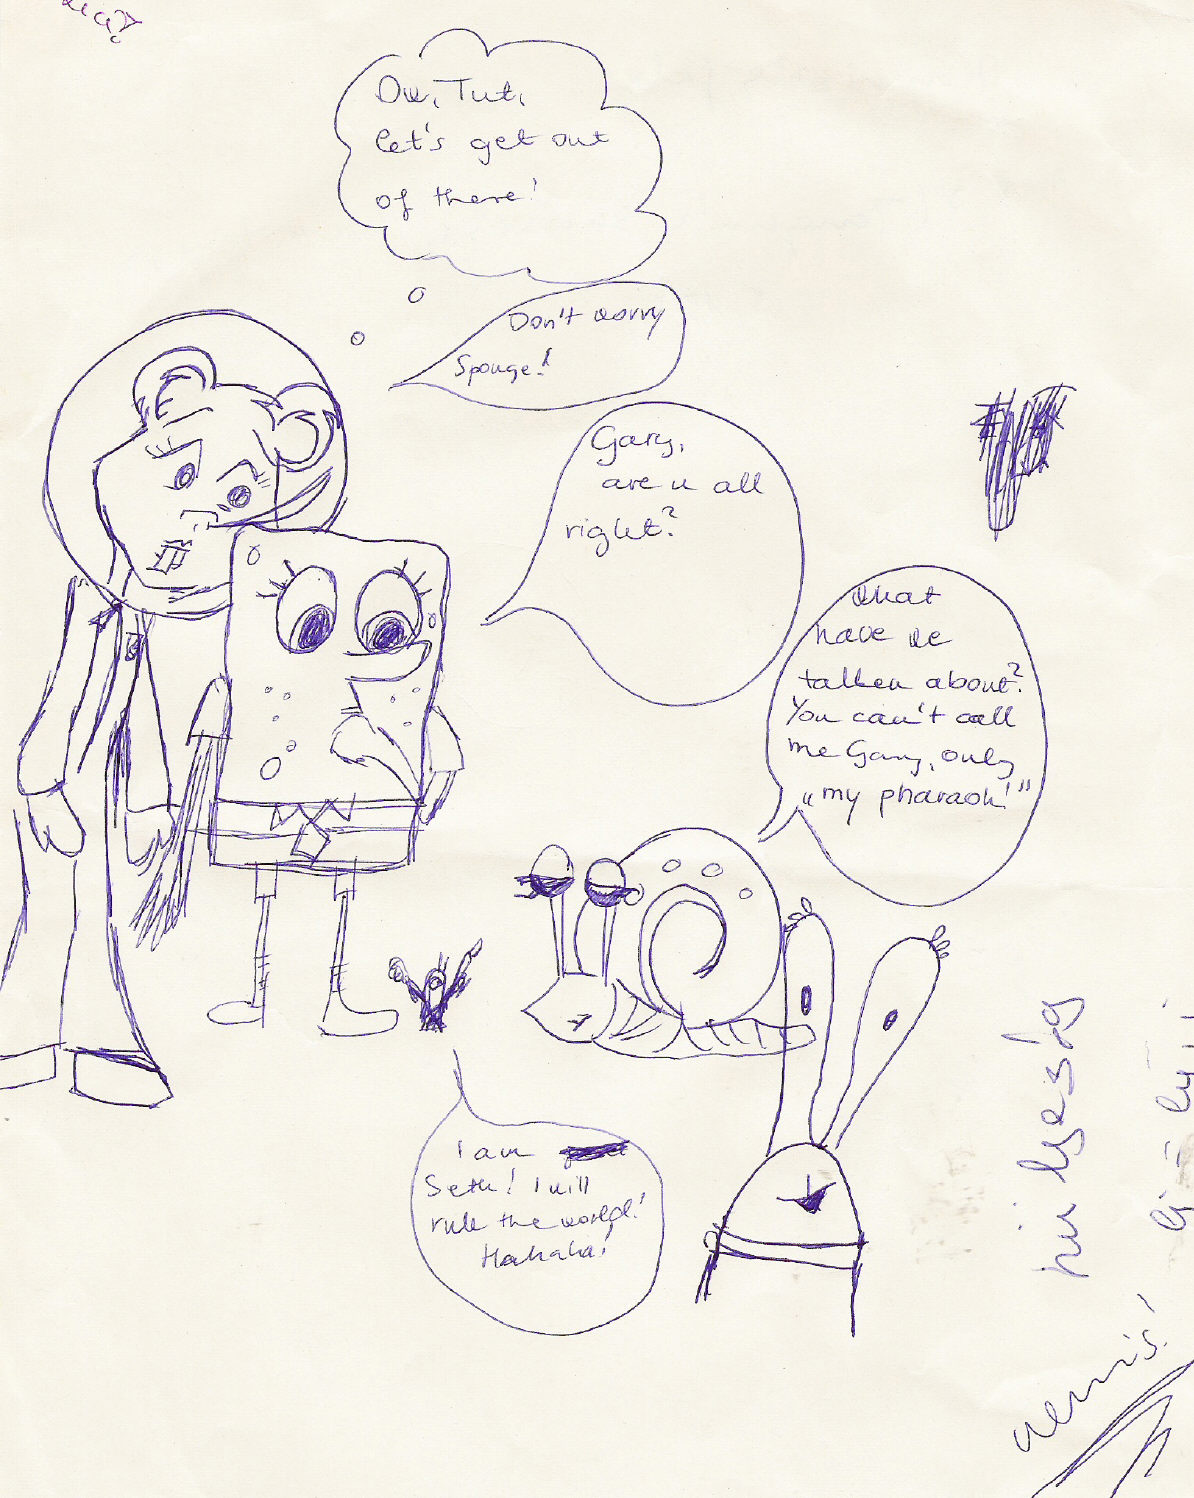 Ow, Tut,
let's get out
of there!
Don't worry
Sponge!
Gary,
are u all
right?
What
have we
talken about?
You can't call
me Gary, only
„my pharaoh!"
I am
Seth! I will
rule the world!
Hahaha!